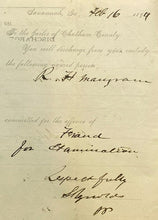 Savannah, Ga., Feb 16 1
To the Jailer of Chatham County:
You will discharge from your custody
the following named person
R. H. Mangram
committed for the offence of
Fraud
for Examination
Respectfully